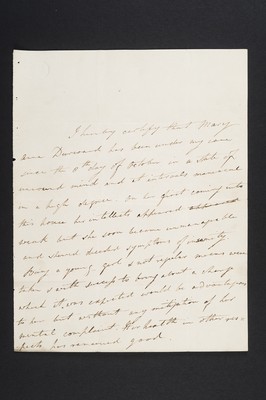 I hereby certify that Mary
Anne Durrand has been under my care
since the 11th day of October in a state of
unsound mind and at intervals maniacal
in a high degree. On her first coming into
this house her intellects appeared
weak but she soon became unmanageable
and shewed decided symptoms of insanity
Being a young girl & not regular means were
taken with respect to bring about a change
which it was expected would be advantageous
to her but without any mitigation of her
mental complaint Her health in other res-
pects has remained good.